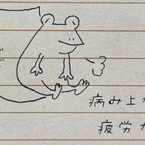 病み上が
疲労